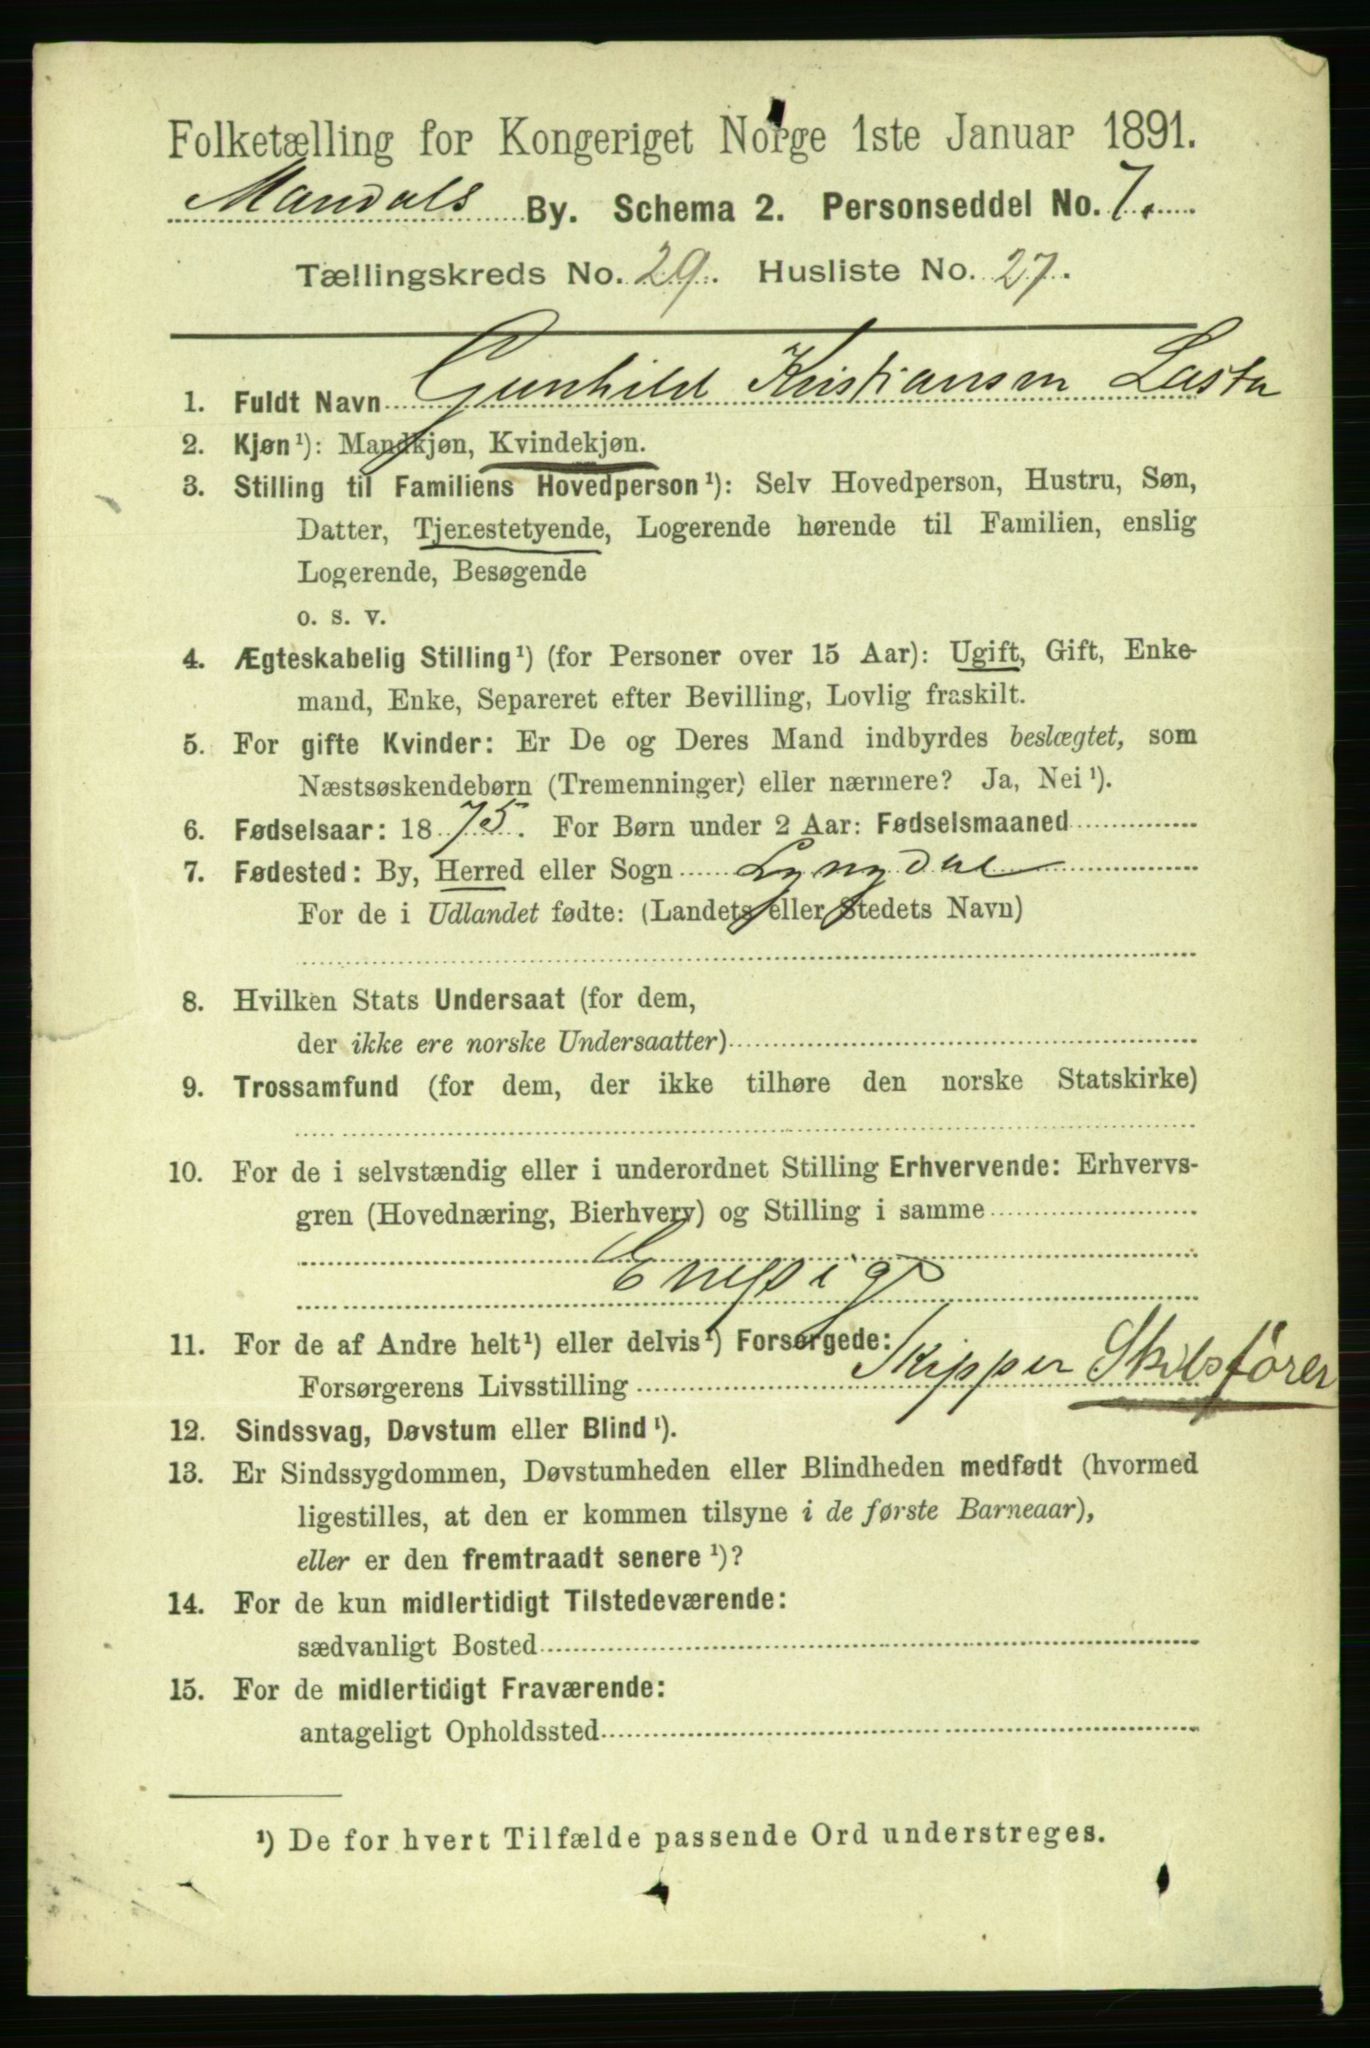 Folketælling for Kongeriget Norge 1ste Januar 1891.
Mandals By. Schema 2. Personseddel No. 7.
Tællingskreds No. 29. Husliste No. 27.
1. Fuldt Navn Gunhild Kristiansen
2. Kjøn¹): Mandkjøn, Kvindekjøn.
3. Stilling til Familiens Hovedperson¹): Selv Hovedperson, Hustru, Søn,
Datter, Tjenestetyende, Logerende hørende til Familien, enslig
Logerende, Besøgende
o. s. v.
4. Ægteskabelig Stilling¹) (for Personer over 15 Aar): Ugift, Gift, Enke-
mand, Enke, Separeret efter Bevilling, Lovlig fraskilt.
5. For gifte Kvinder: Er De og Deres Mand indbyrdes beslægtet, som
Næstsøskendebørn (Tremenninger) eller nærmere? Ja, Nei¹).
6. Fødselsaar: 1875. For Børn under 2 Aar: Fødselsmaaned
7. Fødested: By, Herred eller Sogn Lyngdal
For de i Udlandet fødte: (Landets eller Stedets Navn)
8. Hvilken Stats Undersaat (for dem,
der ikke ere norske Undersaatter)
9. Trossamfund (for dem, der ikke tilhøre den norske Statskirke)
10. For de i selvstændig eller i underordnet Stilling Erhvervende: Erhvervs-
gren (Hovednæring, Bierhverv) og Stilling i samme
11. For de af Andre helt¹) eller delvis¹) Forsørgede:
Forsørgerens Livsstilling Skipper Skibsfører
12. Sindssvag, Døvstum eller Blind¹).
13. Er Sindssygdommen, Døvstumheden eller Blindheden medfødt (hvormed
ligestilles, at den er kommen tilsyne i de første Barneaar),
eller er den fremtraadt senere¹)?
14. For de kun midlertidigt Tilstedeværende:
sædvanligt Bosted
15. For de midlertidigt Fraværende:
antageligt Opholdssted
¹) De for hvert Tilfælde passende Ord understreges.